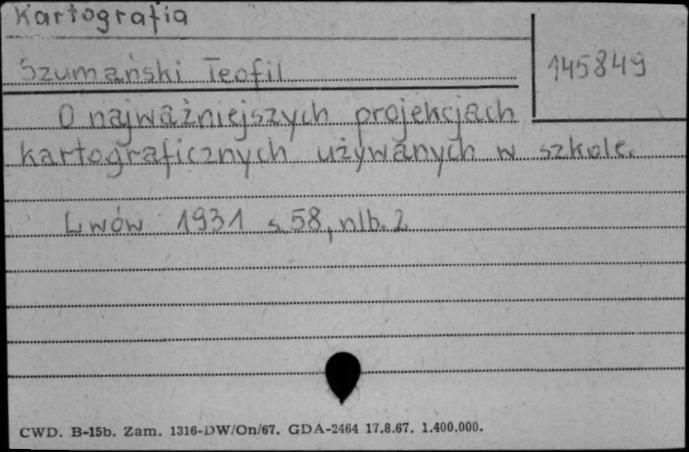 Kartografia
Szumański Teofil
145849
O najważniejszych projekcjach
kartograficznych używanych w szkole.
Lwów 1931 s 58, nlb. 2
CWD. B-15b. Zam. 1316-DW/On/67. GDA-2464 17.8.67. 1.400.000.